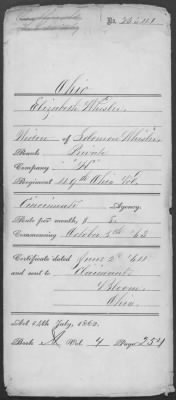 No.
Ohio
Elizabeth Whisler
Widow of Solomon Whisler
Rank Private
Company "H"
Regiment 49th Ohio Vol.
Cincinnati Agency.
Rate per month, $ 8.
Commencing October 5th '63
Certificate dated June 2d '64
and sent to Claimant
Bloom
Ohio.
Act 14th July, 1862.
Book Vol. 4 Page 254